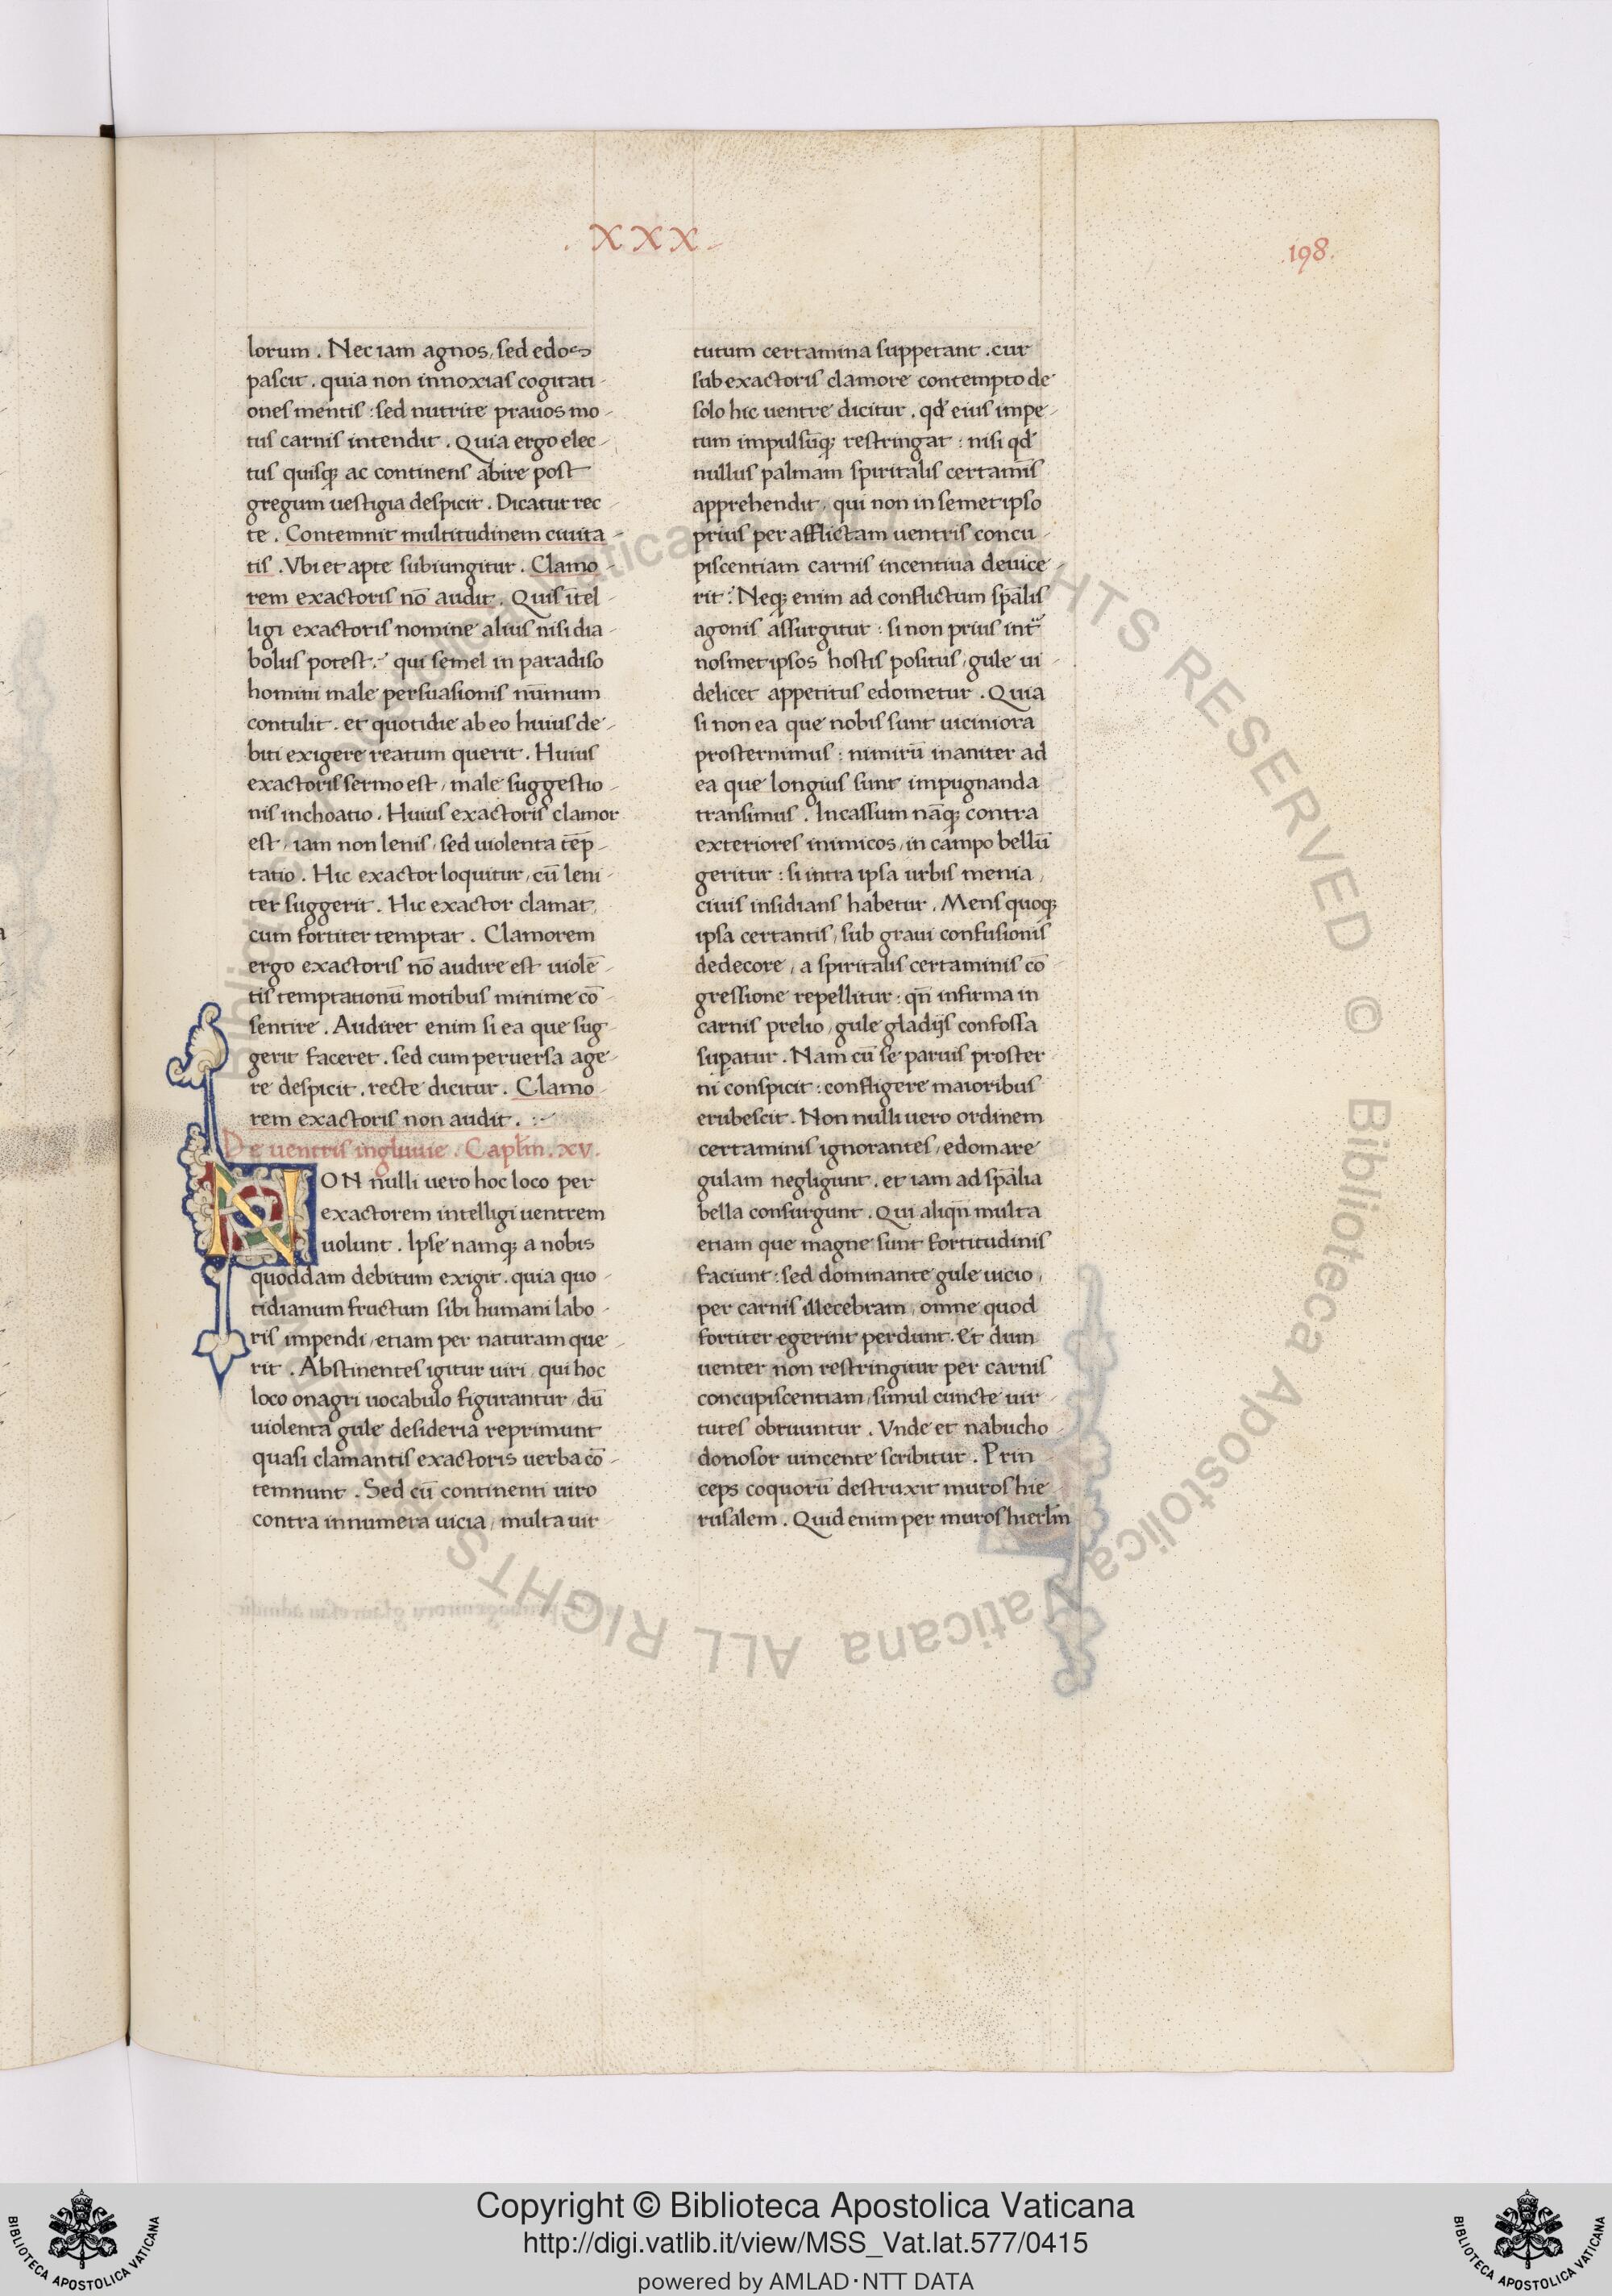 . XXX .
.198.
lorum . Nec iam agnos, sed edos
pascit . quia non innoxias cogitati-
ones mentis : sed nutrite prauos mo-
tus carnis intendit . Quia ergo elec-
tus quisq; ac continens abire post
gregum uestigia despicit . Dicatur rec-
te . Contemnit multitudinem ciuita-
tis . Vbi et apte subiungitur . Clamo-
rem exactoris nō audit . Quis ītel-
ligi exactoris nomine alius nisi dia-
bolus potest . qui semel in paradiso
homini male persuasionis nūmum
contulit . et quotidie ab eo huius de-
biti exigere reatum querit . Huius
exactoris sermo est, male suggestio-
nis inchoatio . Huius exactoris clamor
est, iam non lenis, sed uiolenta tēp-
tatio . Hic exactor loquitur, cū leni-
ter suggerit . Hic exactor clamat,
cum fortiter temptat . Clamorem
ergo exactoris nō audire est uiolē-
tis temptationū motibus minime cō-
sentire . Audiret enim si ea que sug-
gerit faceret . sed cum peruersa age-
re despicit . recte dicitur . Clamo-
rem exactoris non audit .
De uentris ingluuie . Caplm̄ . xv .
NON nulli uero hoc loco per
exactorem intelligi uentrem
uolunt . Ipse namq; a nobis
quoddam debitum exigit . quia quo-
tidianum fructum sibi humani labo-
ris impendi, etiam per naturam que-
rit . Abstinentes igitur uiri, qui hoc
loco onagri uocabulo figurantur, dū
uiolenta gule desideria reprimunt
quasi clamantis exactoris uerba cō-
temnunt . Sed cū continenti uiro
contra innumera uicia, multa uir-
tutum certamina suppetant . cur
sub exactoris clamore contempto de
solo hic uentre dicitur . qd̄ eius impe-
tum impulsūq; restringat : nisi qd̄
nullus palmam spiritalis certamīs
apprehendit, qui non in semet ipso
prius per afflictam uentris concu-
piscentiam carnis incentiua deuice-
rit : Neq; enim ad conflictum spālis
agonis assurgitur : si non prius int̄
nosmet ipsos hostis positus, gule ui-
delicet appetitus edometur . Quia
si non ea que nobis sunt uiciniora
prosternimus : nimirū inaniter ad
ea que longius sunt impugnanda
transimus . Incassum nāq; contra
exteriores inimicos, in campo bellū
geritur : si intra ipsa urbis menia,
ciuis insidians habetur . Mens quoq;
ipsa certantis, sub graui confusionis
dedecore, a spiritalis certaminis cō-
gressione repellitur : qn̄ infirma in
carnis prelio, gule gladijs confossa
supatur . Nam cū se paruis proster-
ni conspicit : confligere maioribus
erubescit . Non nulli uero ordinem
certaminis ignorantes, edomare
gulam negligunt . et iam ad spālia
bella consurgunt . Qui aliqn̄ multa
etiam que magne sunt fortitudinis
faciunt : sed dominante gule uicio,
per carnis illecebram, omne quod
fortiter egerint perdunt . Et dum
uenter non restringitur per carnis
concupiscentiam, simul cuncte uir-
tutes obruuntur . Vnde et nabucho-
donosor uincente scribitur . Prin-
ceps coquorū destruxit muros hie-
rusalem . Quid enim per muros hierlm̄
Biblioteca Apostolica Vaticana ALL RIGHTS RESERVED ©
Copyright © Biblioteca Apostolica Vaticana
http://digi.vatlib.it/view/MSS_Vat.lat.577/0415
powered by AMLAD·NTT DATA
BIBLIOTECA APOSTOLICA VATICANA
BIBLIOTECA APOSTOLICA VATICANA